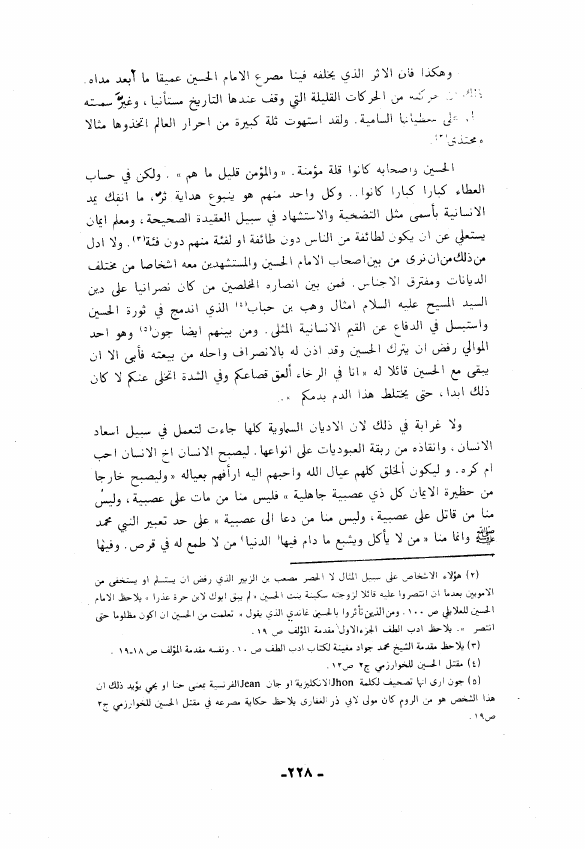 وهكذا فان الاثر الذي يخلفه فينا مصرع الامام الحسين عميقا ما أبعد مداه.
حركته من الحركات القليلة التي وقف عندها التاريخ مستأنيا ، وغير سمته
على معطياتها السامية. ولقد استهوت ثلة كبيرة من احرار العالم اتخذوها مثالا
محتذى(٢).
الحسين واصحابه كانوا قلة مؤمنة. «والمؤمن قليل ما هم» . ولكن في حساب
العطاء كبارا كبارا كانوا.. وكل واحد منهم هو ينبوع هداية ثر، ما انفك يمد
الانسانية بأسمى مثل التضحية والاستشهاد في سبيل العقيدة الصحيحة ، ومعلم ايمان
يستعلي عن ان يكون لطائفة من الناس دون طائفة او لفئة منهم دون فئة(٣). ولا ادل
من ذلك من ان نرى من بين اصحاب الامام الحسين والمستشهدين معه اشخاصا من مختلف
الديانات ومفترق الاجناس. فمن بين انصاره المخلصين من كان نصرانيا على دين
السيد المسيح عليه السلام امثال وهب بن حباب(٤) الذي اندمج في ثورة الحسين
واستبسل في الدفاع عن القيم الانسانية المثلى. ومن بينهم ايضا جون(٥) وهو احد
الموالي رفض ان يترك الحسين وقد اذن له بالانصراف واحله من بيعته فأبى الا ان
يبقى مع الحسين قائلا له «انا في الرخاء ألعق قصاعكم وفي الشدة اتخلى عنكم لا كان
ذلك ابدا ، حتى يختلط هذا الدم بدمكم »..
ولا غرابة في ذلك لان الاديان السماوية كلها جاءت لتعمل في سبيل اسعاد
الانسان ، وانقاذه من ربقة العبوديات على انواعها. ليصبح الانسان اخ الانسان احب
ام كره. و ليكون ألخلق كلهم عيال الله واحبهم اليه ارأفهم بعياله «وليصبح خارجا
من حظيرة الايمان كل ذي عصبية جاهلية » فليس منا من مات على عصبية ، وليس
منا من قاتل على عصبية ، وليس منا من دعا الى عصبية » على حد تعبير النبي محمد
ﷺ وانما منا « من لا يأكل ويشبع ما دام فيها الدنيا من لا طمع له في قرص. وفيها
(٢) هؤلاء الاشخاص على سبيل المثال لا الحصر مصعب بن الزبير الذي رفض ان يستسلم او يستخفي من
الامويين بعدما ان انتصروا عليه قائلا لزوجته سكينة بنت الحسين « لم يبق ابوك لابن حرة عذرا » يلاحظ الامام
الحسين للعلايلي ص ١٠٠. ومن الذين تأثروا بالحسين غاندي الذي يقول « تعلمت من الحسين ان اكون مظلوما حتى
انتصر ». يلاحظ ادب الطف الجزء الاول مقدمة المؤلف ص ١٩.
(٣) يلاحظ مقدمة الشيخ محمد جواد مغنية لكتاب ادب الطف ص ١٠. ونفسه مقدمة المؤلف ص ١٨-١٩.
(٤) مقتل الحسين للخوارزمي ج٢ ص١٢.
(٥) جون ارى انها تصحيف لكلمة Jhon الانكليزية او جان Jean الفرنسية بمعنى حنا او يحي يؤيد ذلك ان
هذا الشخص هو من الروم كان مولى لابي ذر الغفارى يلاحظ حكاية مصرعه في مقتل الحسين للخوارزمي ج٢
ص١٩.
-٢٢٨-